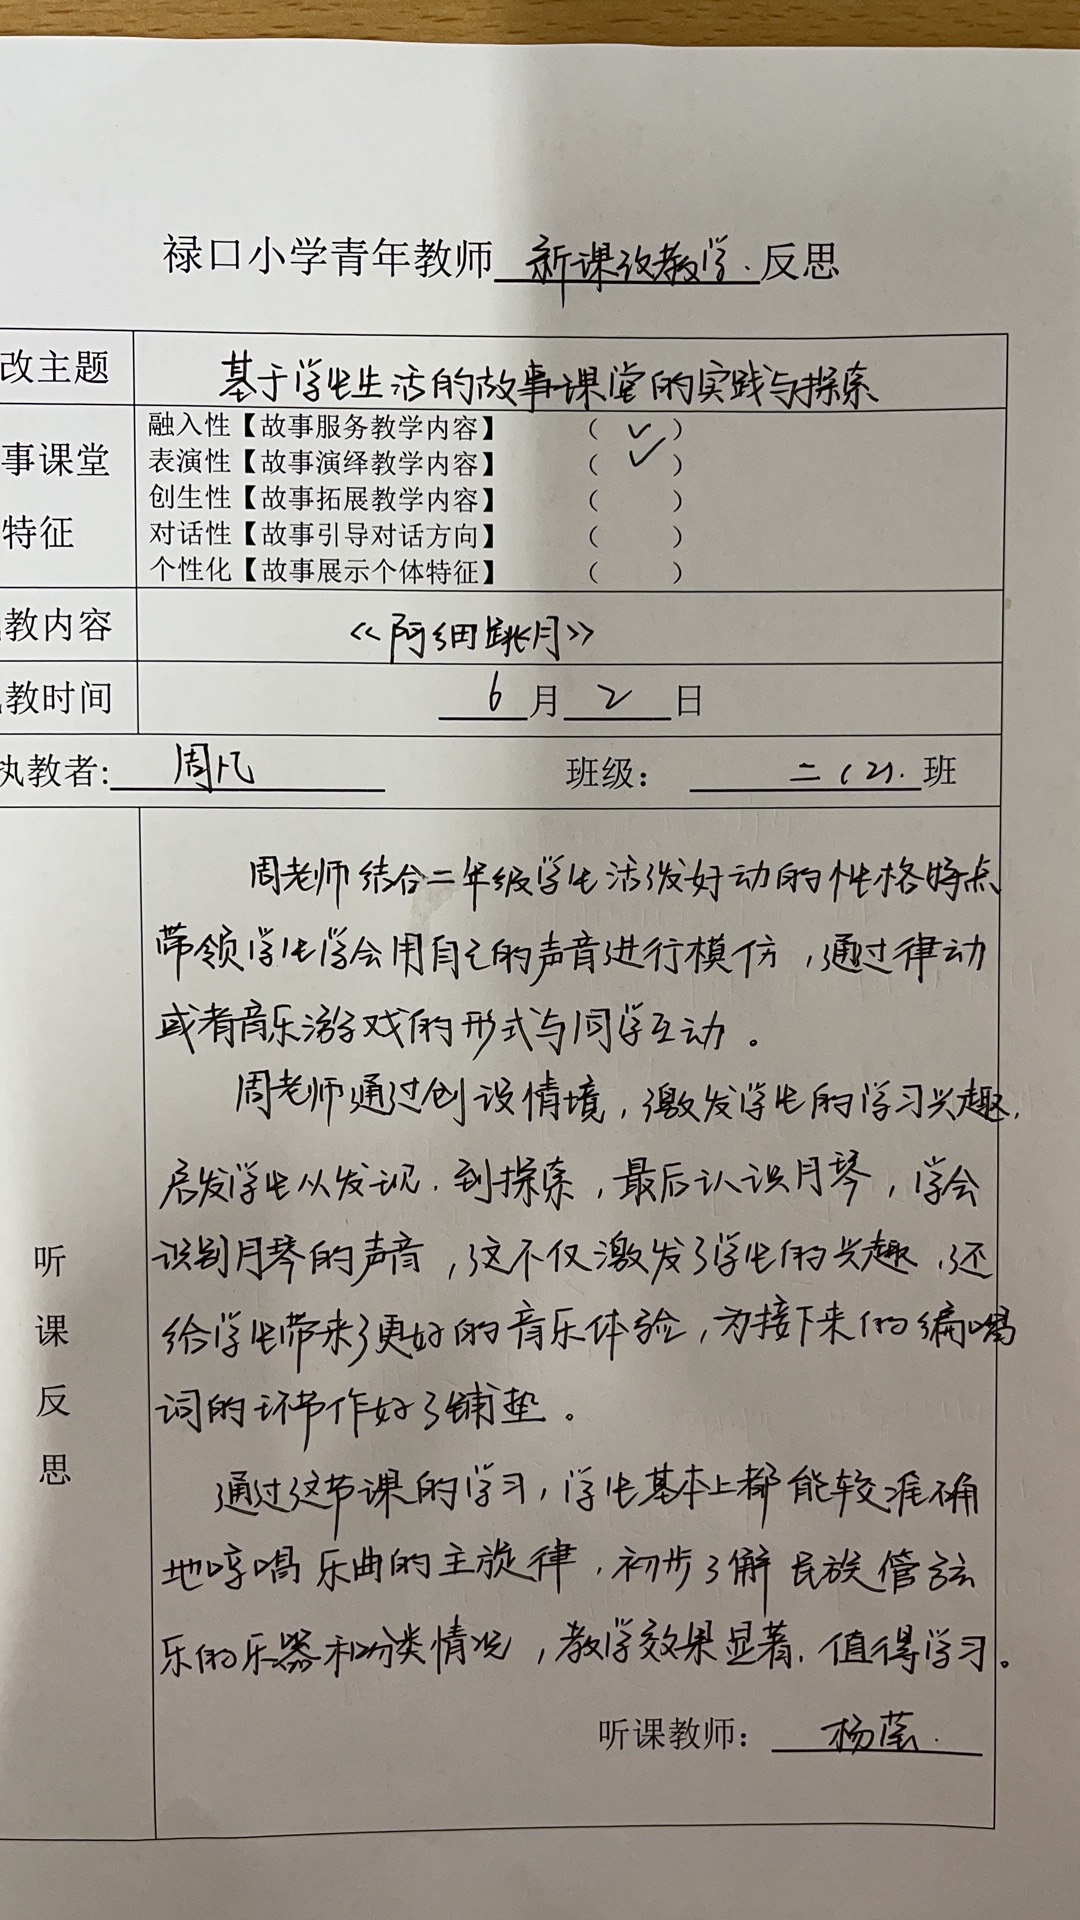 禄口小学青年教师 新课改教学 反思
改主题 基于学生生活的故事课堂的实践与探索
融入性【故事服务教学内容】 （ ✓ ）
事课堂 表演性【故事演绎教学内容】 （ ✓ ）
创生性【故事拓展教学内容】 （ ）
特征 对话性【故事引导对话方向】 （ ）
个性化【故事展示个体特征】 （ ）
教内容 《阿细跳月》
教时间 6月2日
执教者: 周凡 班级： 二（2）. 班
周老师结合二年级学生活泼好动的性格特点
带领学生学会用自己的声音进行模仿，通过律动
或者音乐游戏的形式与同学互动。
周老师通过创设情境，激发学生的学习兴趣，
启发学生从发现.到探索，最后认识月琴，学会
识别月琴的声音，这不仅激发了学生的兴趣，还
给学生带来了更好的音乐体验，为接下来的编唱
词的环节作好了铺垫。
通过这节课的学习，学生基本上都能较准确
地哼唱乐曲的主旋律，初步了解民族管弦
乐的乐器和分类情况，教学效果显著，值得学习。
听课反思
听课教师： 杨蕊